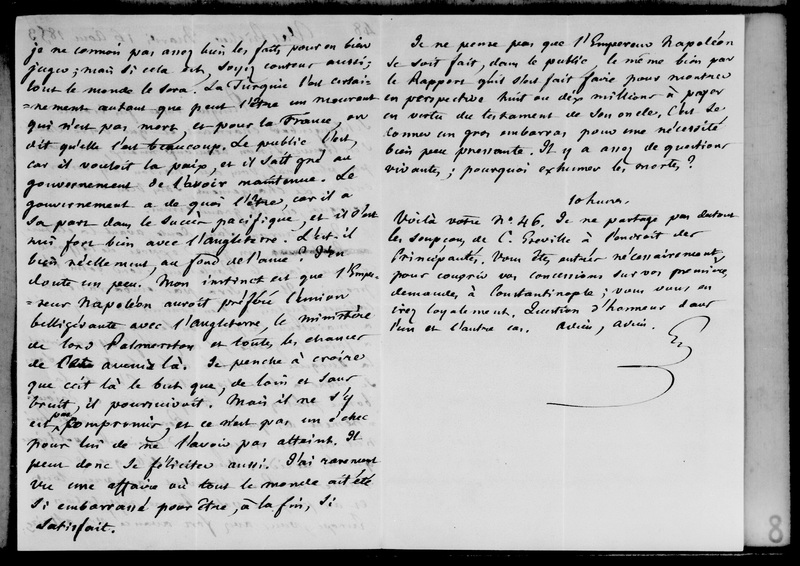 je ne connois pas assez bien les faits pour en bien
juger; mais si cela est, soyez content aussi;
tout le monde le sera. La Turquie l'est certai-
=nement autant que peut l'être un mourant
qui n'est pas mort, et pour la France, on
dit qu'elle l'est beaucoup. Le public l'est,
car il vouloit la paix, et il sait gré au
gouvernement de l'avoir maintenue. Le
gouvernement a de quoi l'être, car il a
sa part dans le succès pacifique, et il s'est
mis fort bien avec l'Angleterre. L'est-il
bien réellement, au fond de l'ame? J'en
doute un peu. Mon instinct est que l'Empe-
=reur Napoléon auroit préféré l'union
belligérante avec l'Angleterre, le ministère
de lord Palmerston et toutes les chances
de cet avenir là. Je penche à croire
que c'est là le but que, de loin et sans
bruit, il poursuivoit. Mais il ne s'y
est pas compromis, et ce n'est pas un échec
pour lui de ne l'avoir pas atteint. Il
peut donc se féliciter aussi. J'ai rarement
vu une affaire où tout le monde ait été
si embarrassé pour être, à la fin, si
satisfait.
Je ne pense pas que l'Empereur Napoléon
se soit fait, dans le public, le même bien par
le Rapport qu'il s'est fait faire pour montrer
en perspective huit ou dix millions à payer
en vertu du testament de son oncle. C'est se
donner un gros embarras pour une nécessité
bien peu pressante. Il y a assez de questions
vivantes; pourquoi exhumer les mortes?
10 heures.
Voilà votre n°. 46. Je ne partage pas du tout
les soupçons de C. Greville à l'endroit des
Principautés. Vous êtes entrés nécessairement
pour couvrir vos concessions sur vos premières
demandes à Constantinople; vous vous en
irez loyalement. Question d'honneur dans
l'un et l'autre cas. Adieu, adieu.
G
8